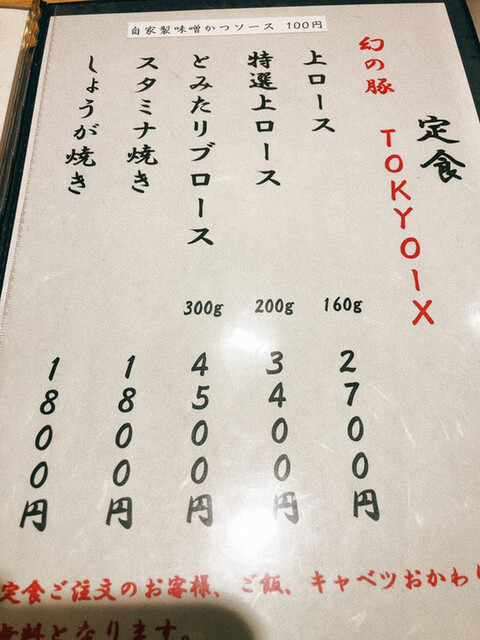 自家製味噌かつソース 100円
定食
幻の豚 TOKYOIX
上ロース 160g 2700円
特選上ロース 200g 3400円
とみたリブロース 300g 4500円
スタミナ焼き 1800円
しょうが焼き 1800円
定食ご注文のお客様、ご飯、キャベツおかわり
無料となります。